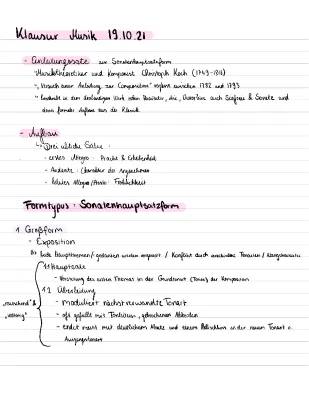 Klausur Musik 19.10.21
- Einleitungssatz zur Sonatenhauptsatzform
Musiktheoretiker und Komponist Christoph Koch (1749-1816)
"Versuch einer Anleitung zur Composition" verfasst zwischen 1782 und 1793
in dem dreibändigen Werk neben die auch Sinfonie & Sonate und
deren formaler Aufbau aus der Klassik
- Aufbau
Drei übliche Sätze:
- erstes Allegro: Pracht & Erhabenheit
- Andante: Charakter des Angenehmen
- letztes Allegro/Presto: Fröhlichkeit
Formtypus: Sonatenhauptsatzform
1. Großform
- Exposition
beide Hauptthemen/ werden / Konflikt durch Tonarten /
1.1 Hauptsatz
- Vorstellung des ersten Themas in der Grundtonart (Tonika) der Komposition
1.2 Überleitung
- moduliert nächstverwandte Tonart
"rauschend" &
- oft gefüllt mit Tonleitern, gebrochenen Akkorden
- endet meist mit deutlichem und einem Halbschluss in der neuen Tonart o.
Ausgangstonart